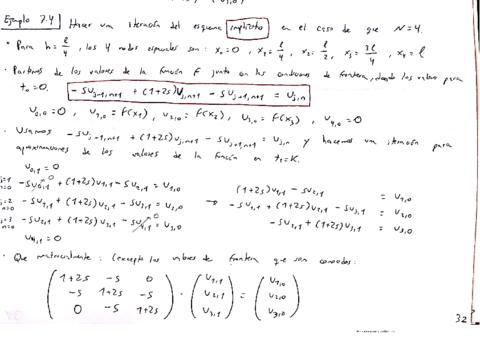 Ejemplo 7.4 Hacer una iteración del esquema implícito en el caso de que N=4.
• Para h = l/4, los 4 nodos espaciales son: x₀=0, x₁=l/4, x₂=l/2, x₃=3l/4, x₄=l
• Partimos de los valores de la función F junto con las condiciones de frontera, dando los valores para
t₀=0. -sU_{j-1,n+1} + (1+2s)U_{j,n+1} - sU_{j+1,n+1} = U_{j,n}
U_{0,0}=0, U_{1,0}=F(x₁), U_{2,0}=F(x₂), U_{3,0}=F(x₃), U_{4,0}=0
• Usamos -sU_{j-1,n+1} + (1+2s)U_{j,n+1} - sU_{j+1,n+1} = U_{j,n} y hacemos una iteración para
aproximaciones de los valores de la función en t₁=K.
U_{0,1}=0
j=1 n=0 -sU_{0,1} 0 + (1+2s)U_{1,1} - sU_{2,1} = U_{1,0}
j=2 n=0 -sU_{1,1} + (1+2s)U_{2,1} - sU_{3,1} = U_{2,0}
j=3 n=0 -sU_{2,1} + (1+2s)U_{3,1} - sU_{4,1} 0 = U_{3,0}
U_{4,1}=0
→ (1+2s)U_{1,1} - sU_{2,1} = U_{1,0}
-sU_{1,1} + (1+2s)U_{2,1} - sU_{3,1} = U_{2,0}
-sU_{2,1} + (1+2s)U_{3,1} = U_{3,0}
• Que matricialmente: (excepto los valores de frontera que son conocidos:
( 1+2s -s 0 ) ( U_{1,1} ) ( U_{1,0} )
( -s 1+2s -s ) · ( U_{2,1} ) = ( U_{2,0} )
( 0 -s 1+2s ) ( U_{3,1} ) ( U_{3,0} )
32